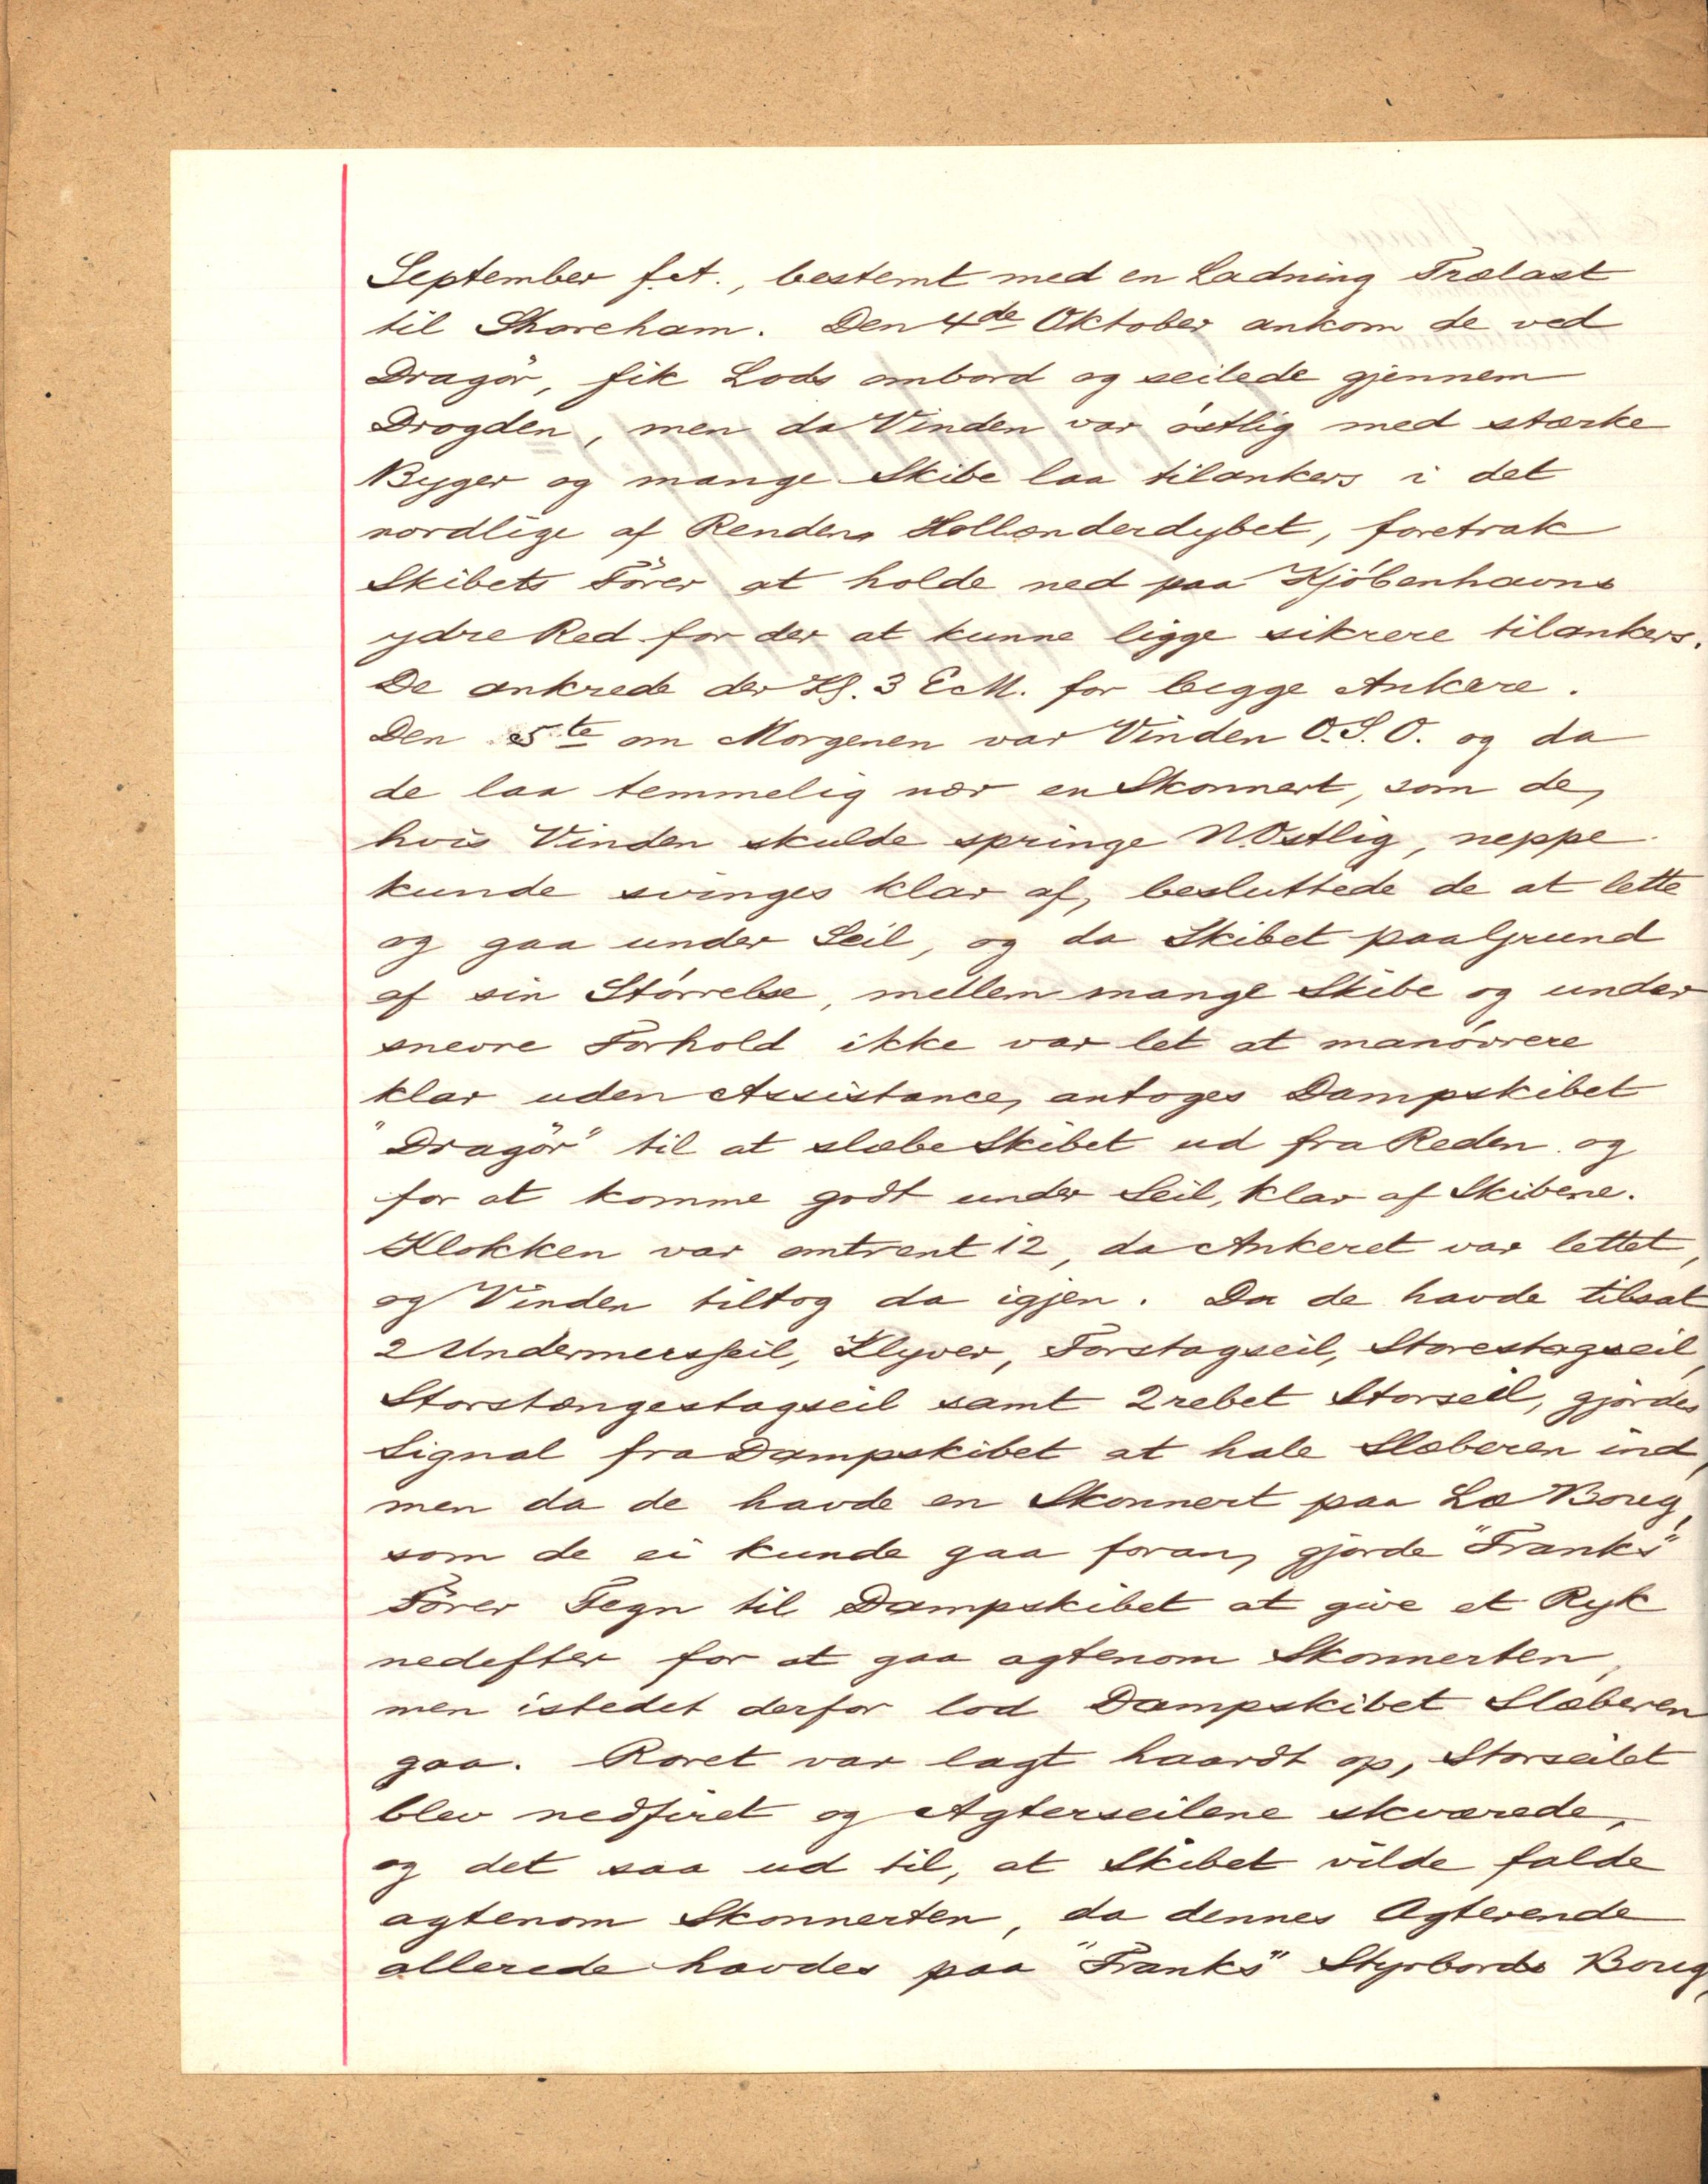 September f.A., bestemt med en Ladning Trælast
til Shoreham. Den 4de Oktober ankom de ved
Dragör, fik Lods ombord og seilede gjennem
Drogden, men da Vinden var östlig med stærke
Byger og mange Skibe laa tilankers i det
nordlige af Renden Hollænderdybet, foretrak
Skibets Förer at holde ned paa Kjöbenhavns
ydre Red for der at kunne ligge sikrere tilankers.
De ankrede der Kl. 3 E.M. for begge Ankere.
Den 5te om Morgenen var Vinden O.S.O. og da
de laa temmelig nær en Skonnert, som de,
hvis Vinden skulde springe N.Ostlig, neppe
kunde svinges klar af, besluttede de at lette
og gaa under Seil, og da Skibet paaGrund
af sin Störrelse, mellem mange Skibe og under
snevre Forhold ikke var let at manövrere
klar uden Assistance, antoges Dampskibet
"Dragör" til at slæbe Skibet ud fra Reden og
for at komme godt under Seil, klar af Skibene.
Klokken var omtrent 12, da Ankeret var lettet,
og Vinden tiltog da igjen. Da de havde tilsat
2 Undermersseil, Klyver, Forstagseil, Storestagseil,
Storstængestagseil samt 2 rebet Storseil, gjordes
Signal fra Dampskibet at hale Slæberen ind,
men da de havde en Skonnert paa Læ Boug,
som de ei kunde gaa foran, gjorde "Franks"
Förer Tegn til Dampskibet at give et Ryk
nedefter for at gaa agtenom Skonnerten,
men istedet derfor lod Dampskibet Slæberen
gaa. Roret var lagt haardt op, Storseilet
blev nedfiret og Agterseilene skværede,
og det saa ud til, at Skibet vilde falde
agtenom Skonnerten, da dennes Agterende
allerede havdes paa "Franks" Styrbords Boug,